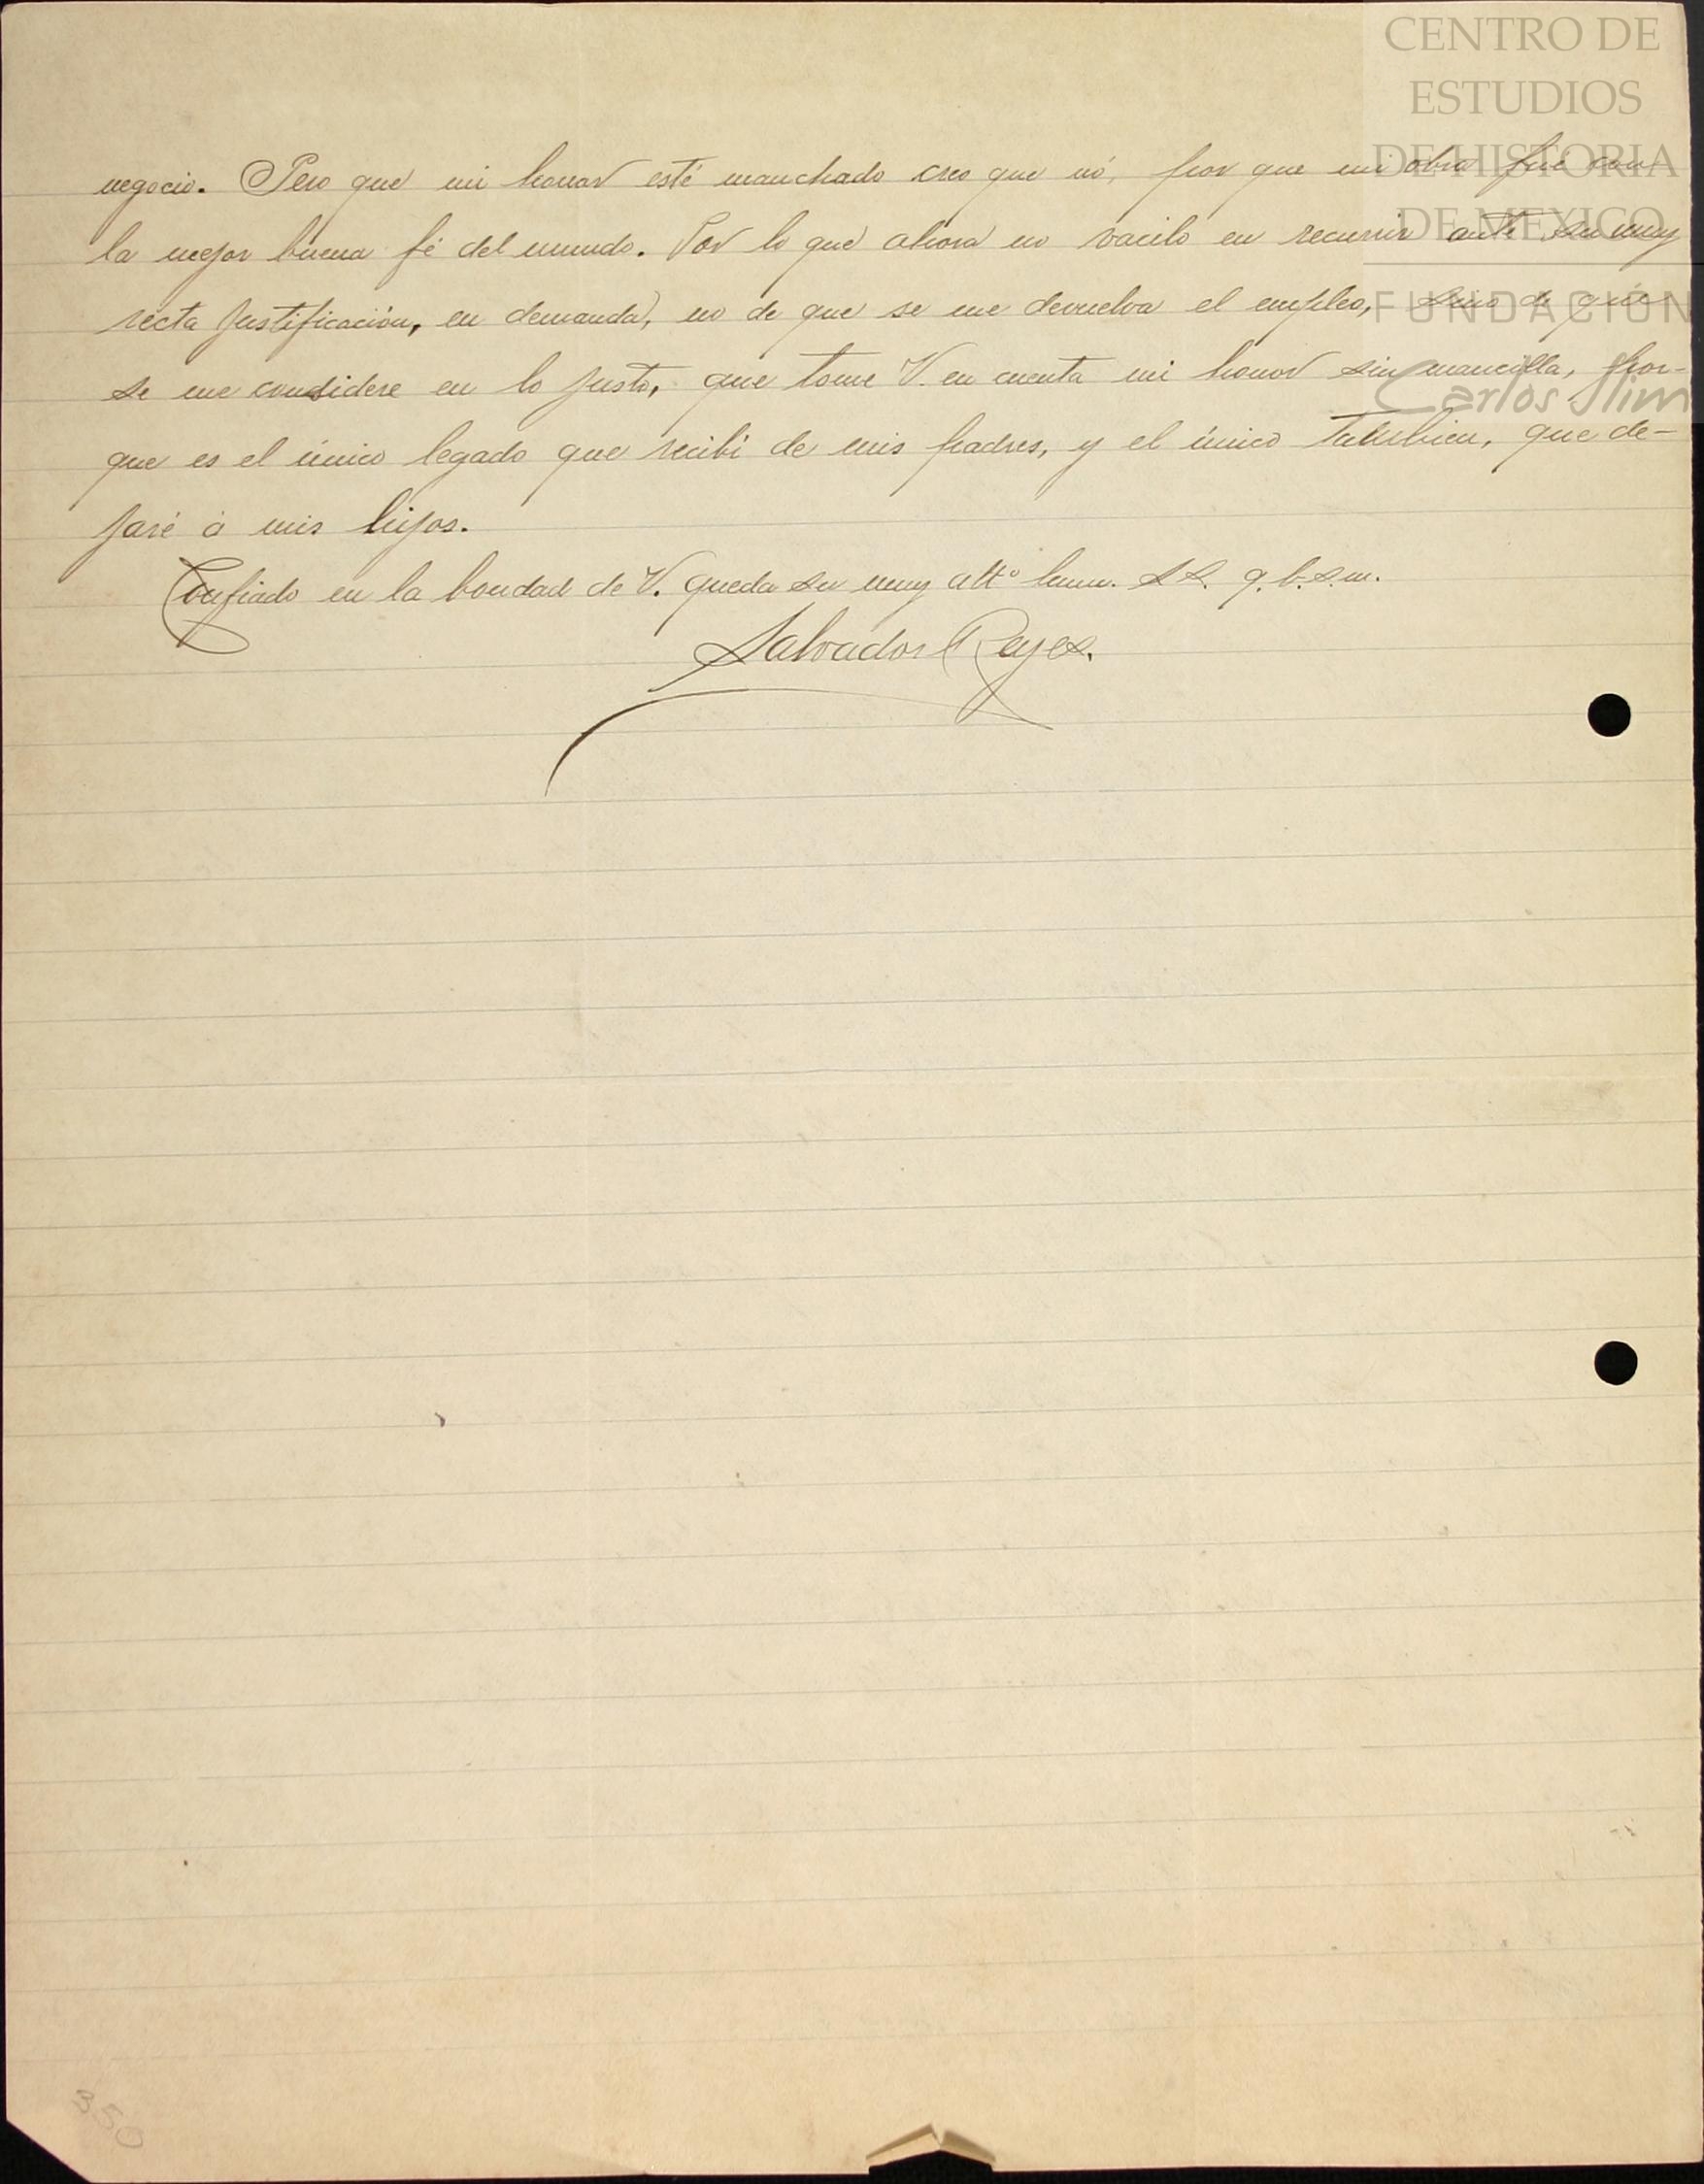 CENTRO DE
ESTUDIOS
DE HISTORIA
DE MEXICO
FUNDACIÓN
Carlos Slim
negocio. Pero que mi honor esté manchado creo que nó, por que mi obra fué con
la mejor buena fé del mundo. Por lo que ahora no vacilo en recurrir ante su muy
recta justificación, en demanda, no de que se me devuelva el empleo, sino de que
se me considere en lo justo, que tome V. en cuenta mi honor sin mancilla, por-
que es el único legado que recibí de mis padres, y el único también, que de-
jaré á mis hijos.
Confiado en la bondad de V. queda su muy attº S.S. q.b.s.m.
Salvador Reyes.
350